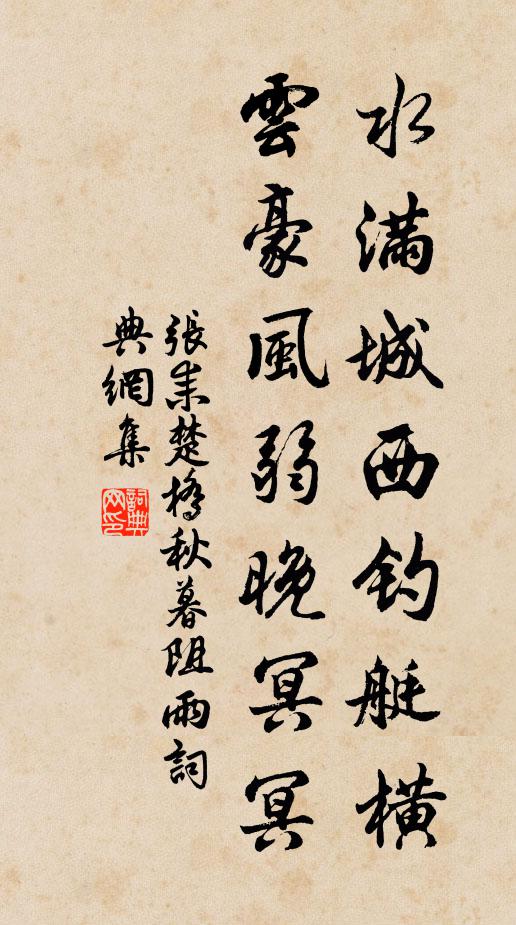 水滿城西釣艇橫
雲豪風弱晚冥冥
張耒楚橋秋暮阻雨詞
典網集
詞典網印